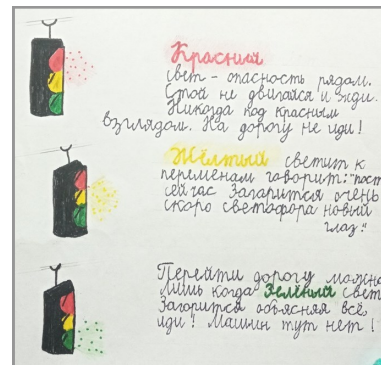 Красный
свет - опасность рядом.
Стой не двигайся и жди.
Никогда под красным
взглядом. На дорогу не иди!
Жёлтый светит к
переменам говорит: "пост
сейчас Загорится очень
скоро светофора новый
глаз."
Перейти дорогу можно
лишь когда Зелёный свет
Загорится объясняя всё
иди! Машин тут нет!